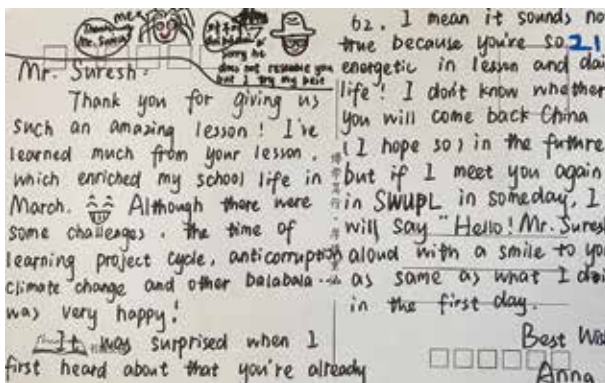 me
Thank you
Mr. Suresh
sorry he
does not resemble you
but I try my best
Mr. Suresh.
Thank you for giving us
such an amazing lesson! I've
learned much from your lesson,
which enriched my school life in
March. Although there were
some challenges, the time of
learning project cycle, anticorruption
climate change and other balabala...
was very happy!
It was surprised when I
first heard about that you're already
62. I mean it sounds no
true because you're so 21
energetic in lesson and dai
life! I don't know whether
you will come back China
(I hope so) in the future
but if I meet you again
in SWUPL in someday, I
will say "Hello! Mr. Sures
aloud with a smile to yo
as same as what I do
in the first day.
Best Wis
Anna